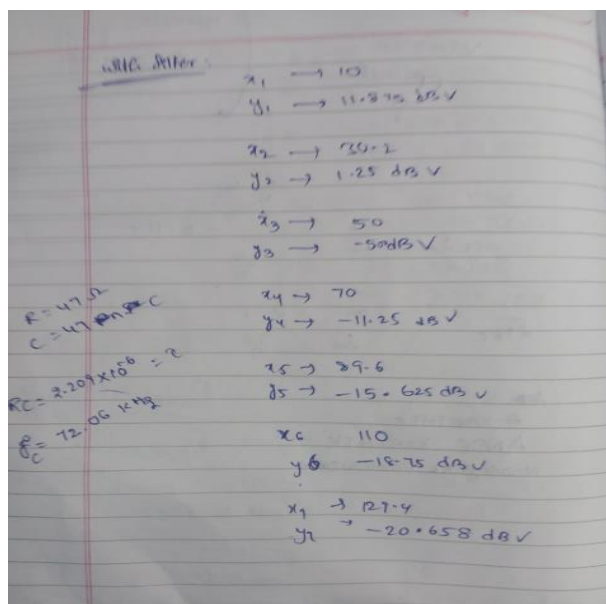 with filter:
x₁ → 10
y₁ → 11.875 dBV
x₂ → 30.2
y₂ → 1.25 dBV
x₃ → 50
y₃ → dBV
x₄ → 70
y₄ → -11.25 dBV
x₅ → 89.6
y₅ → -15.625 dBV
x₆ 110
y₆ -18.75 dBV
x₇ → 129.4
y₇ → -20.658 dBV
R = 47 Ω
C = 47 n
RC = 2.209 × 10⁻⁶ = τ
f_c = 72.06 KHz